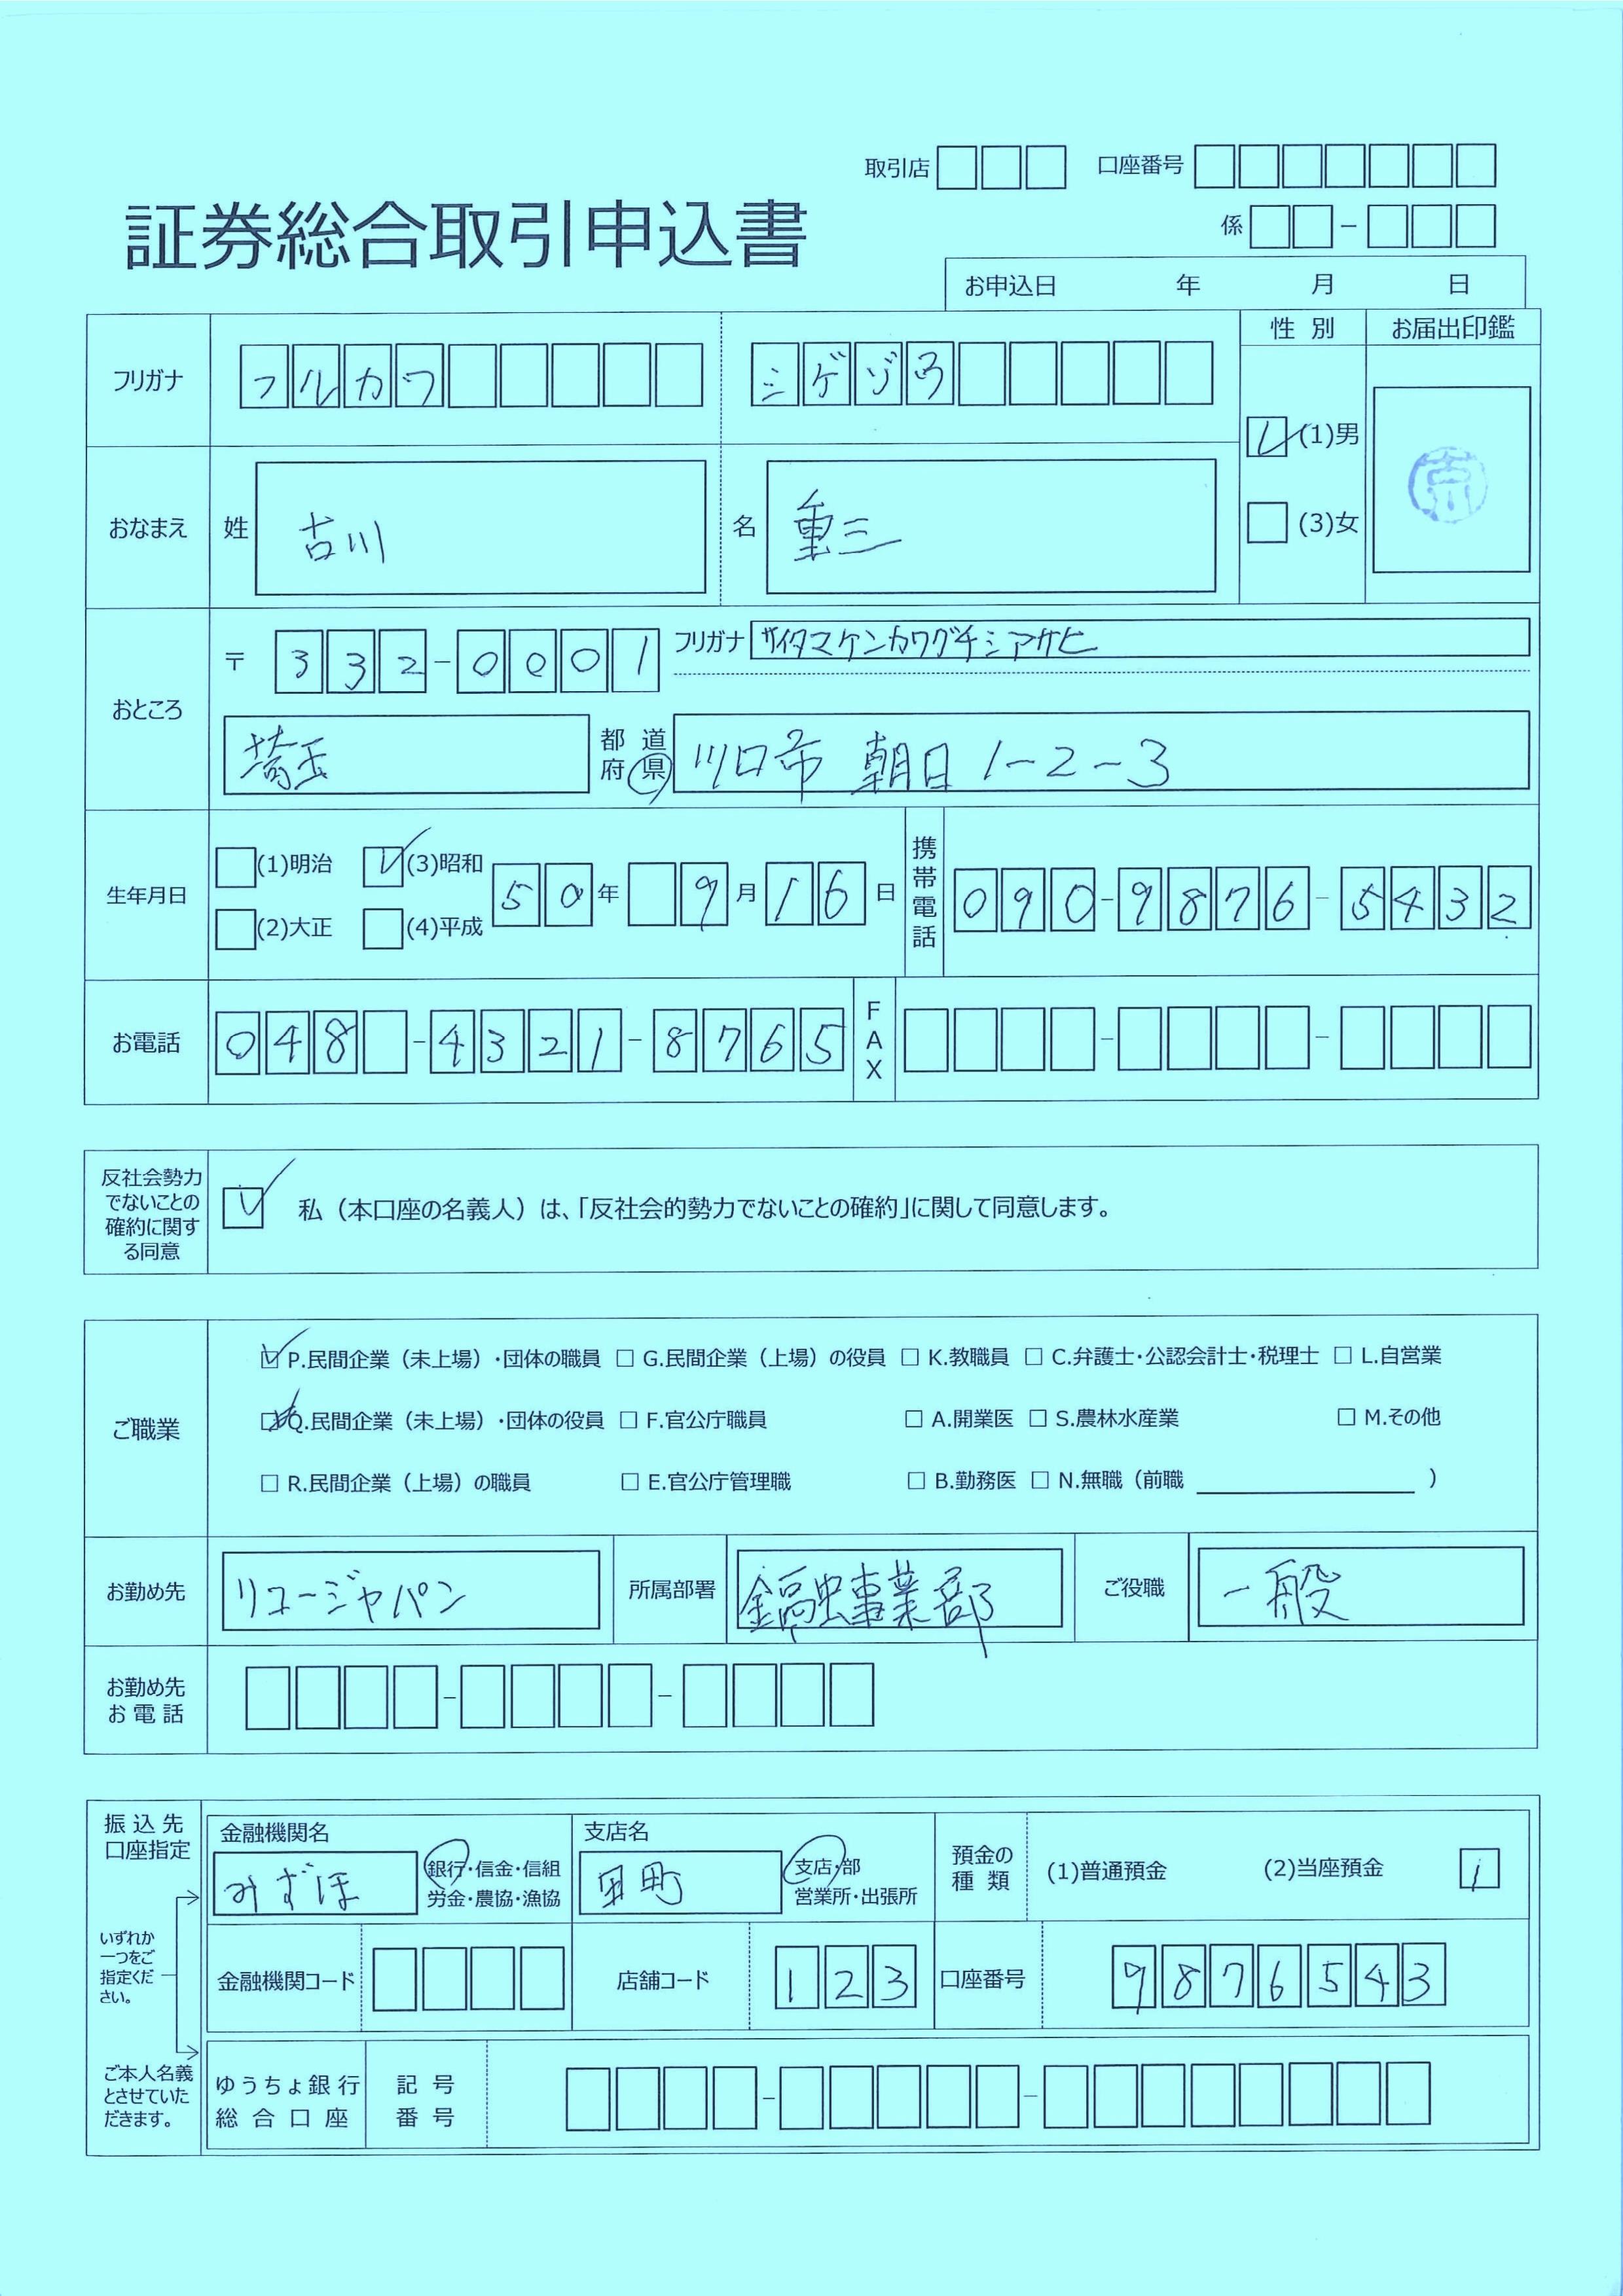 取引店 口座番号
証券総合取引申込書
係 -
お申込日 年 月 日
フリガナ フルカワ シゲゾウ 性別 お届出印鑑
おなまえ 姓 古川 名 重三 (1)男 (3)女
おところ 〒 332-0001 フリガナ サイタマケンカワグチシアサヒ
埼玉 都道府県 川口市 朝日 1-2-3
生年月日 (1)明治 (3)昭和 (2)大正 (4)平成 50年 9月16日 携帯電話 090-9876-5432
お電話 048-4321-8765 FAX - -
反社会勢力でないことの確約に関する同意 私（本口座の名義人）は、「反社会的勢力でないことの確約」に関して同意します。
ご職業
P.民間企業（未上場）・団体の職員 G.民間企業（上場）の役員 K.教職員 C.弁護士・公認会計士・税理士 L.自営業
Q.民間企業（未上場）・団体の役員 F.官公庁職員 A.開業医 S.農林水産業 M.その他
R.民間企業（上場）の職員 E.官公庁管理職 B.勤務医 N.無職（前職 ）
お勤め先 リコージャパン 所属部署 事業部 ご役職 一般
お勤め先お電話 - -
振込先口座指定
金融機関名 みずほ 銀行・信金・信組 労金・農協・漁協
支店名 町 支店・部 営業所・出張所
預金の種類 (1)普通預金 (2)当座預金 1
いずれか一つをご指定ください。
金融機関コード 店舗コード 123 口座番号 9876543
ご本人名義とさせていただきます。
ゆうちょ銀行総合口座 記号番号 - -